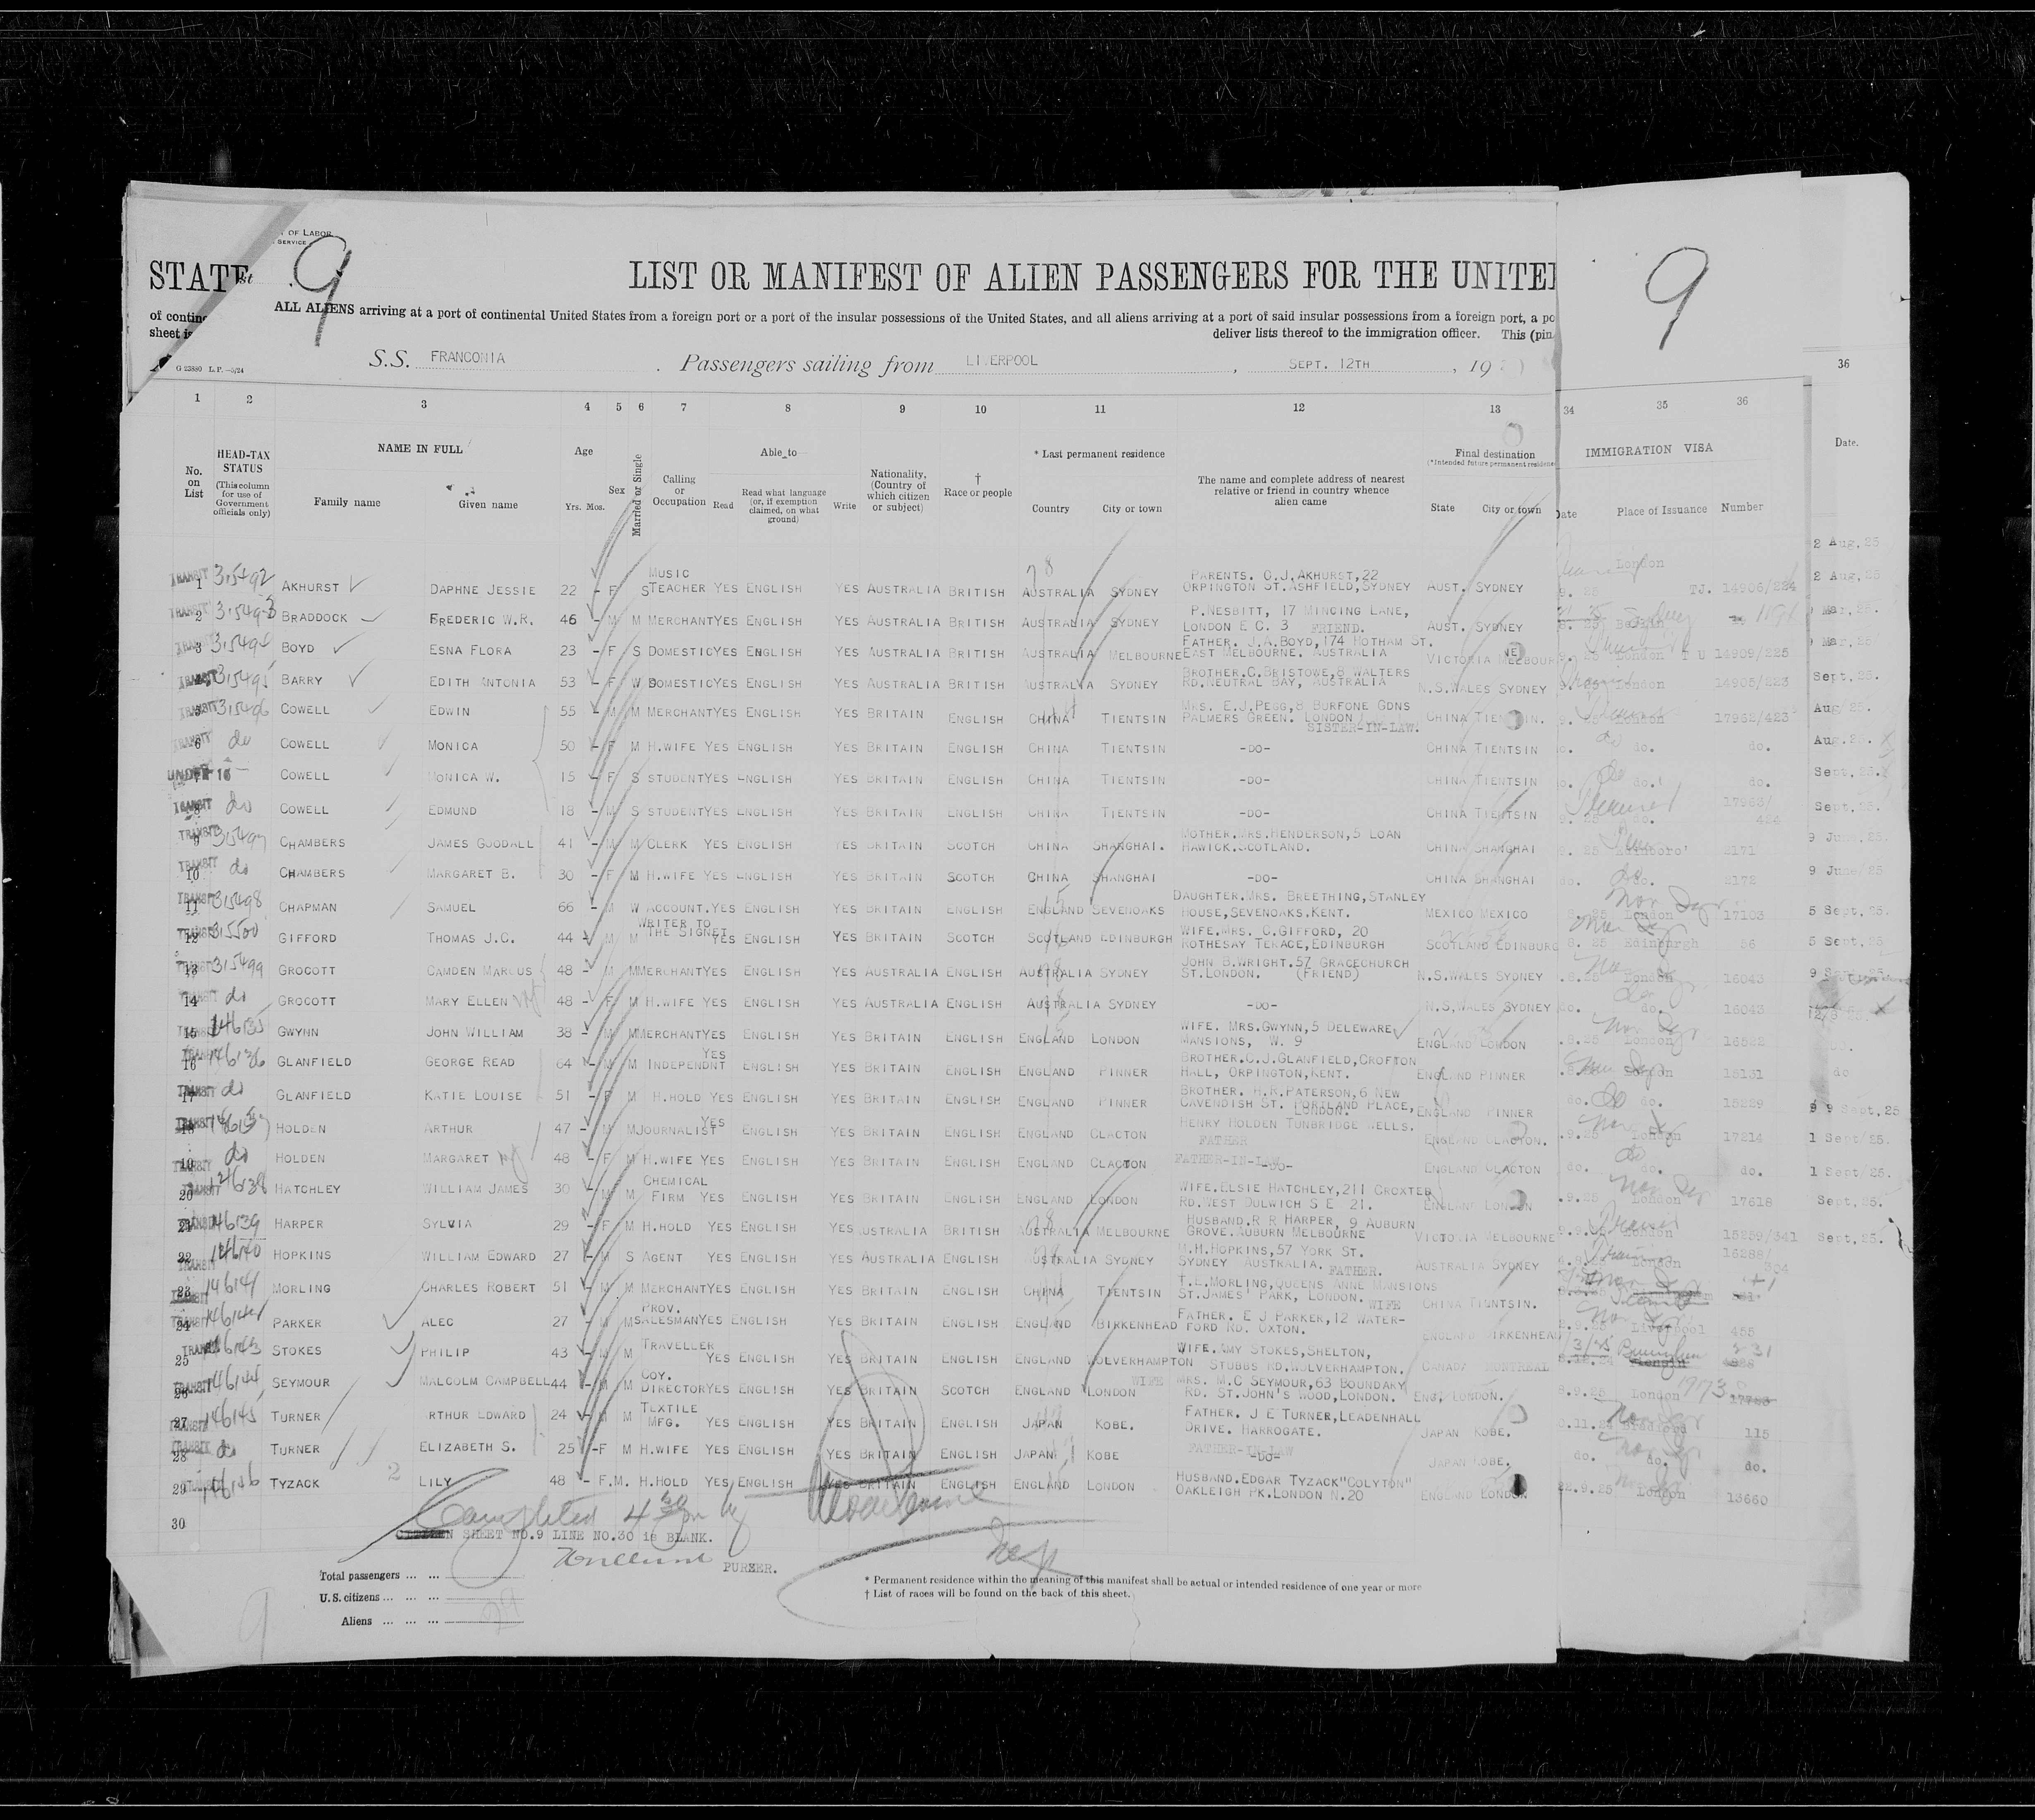 T OF LABOR
SERVICE
9
STATE st LIST OR MANIFEST OF ALIEN PASSENGERS FOR THE UNITE
9
ALL ALIENS arriving at a port of continental United States from a foreign port or a port of the insular possessions of the United States, and all aliens arriving at a port of said insular possessions from a foreign port, a po
of contin
sheet is deliver lists thereof to the immigration officer. This (pin
G 23880 L.P.—5/24 S.S. FRANCONIA . Passengers sailing from LIVERPOOL , SEPT. 12TH , 19
36
1 2 3 4 5 6 7 8 9 10 11 12 13 34 35 36
No. on List HEAD-TAX STATUS (This column for use of Government officials only) NAME IN FULL Family name Given name Age Yrs. Mos. Sex Married or Single Calling or Occupation Able to Read Read what language (or, if exemption claimed, on what ground) Write Nationality. (Country of which citizen or subject) † Race or people * Last permanent residence Country City or town The name and complete address of nearest relative or friend in country whence alien came Final destination (*Intended future permanent residence State City or town IMMIGRATION VISA Date Place of Issuance Number Date.
2 Aug. 25
TRANSIT 1 315492 AKHURST DAPHNE JESSIE 22 - F S MUSIC TEACHER YES ENGLISH YES AUSTRALIA BRITISH AUSTRALIA SYDNEY PARENTS. O.J.AKHURST,22 ORPINGTON ST.ASHFIELD,SYDNEY AUST. SYDNEY 9. 25 London TJ. 14906/224 2 Aug. 25
TRANSIT 2 315493 BRADDOCK FREDERIC W.R. 46 - M M MERCHANT YES ENGLISH YES AUSTRALIA BRITISH AUSTRALIA SYDNEY P.NESBITT, 17 MINCING LANE, LONDON E C. 3 FRIEND. AUST. SYDNEY Sydney Mar. 25.
3 BOYD ESNA FLORA 23 - F S DOMESTIC YES ENGLISH YES AUSTRALIA BRITISH AUSTRALIA MELBOURNE FATHER. J.A.BOYD,174 HOTHAM ST. EAST MELBOURNE. AUSTRALIA VICTORIA MELBOURNE 9. 25 London 14909/225 Mar. 25.
TRANSIT 315495 BARRY EDITH ANTONIA 53 - F W DOMESTIC YES ENGLISH YES AUSTRALIA BRITISH AUSTRALIA SYDNEY BROTHER.G.BRISTOWE,8 WALTERS RD.NEUTRAL BAY, AUSTRALIA N.S.WALES SYDNEY 9. 25 London 14905/223 Sept. 25.
5 315496 COWELL EDWIN 55 - M M MERCHANT YES ENGLISH YES BRITAIN ENGLISH CHINA TIENTSIN MRS. E.J.PEGG,8 BURFONE GDNS PALMERS GREEN. LONDON SISTER-IN-LAW. CHINA TIENTSIN. 9. 25 London 17962/423 Aug. 25.
TRANSIT 6 do COWELL MONICA 50 - F M H.WIFE YES ENGLISH YES BRITAIN ENGLISH CHINA TIENTSIN -DO- CHINA TIENTSIN do. do. do. Aug. 25.
UNDER 16 COWELL MONICA W. 15 - F S STUDENT YES ENGLISH YES BRITAIN ENGLISH CHINA TIENTSIN -DO- CHINA TIENTSIN do. do. do. Sept. 25.
TRANSIT 8 do COWELL EDMUND 18 - M S STUDENT YES ENGLISH YES BRITAIN ENGLISH CHINA TIENTSIN -DO- CHINA TIENTSIN 9. 25 do. 17963/424 Sept. 25.
TRANSIT 9 315497 CHAMBERS JAMES GOODALL 41 - M M CLERK YES ENGLISH YES BRITAIN SCOTCH CHINA SHANGHAI. MOTHER.MRS.HENDERSON,5 LOAN HAWICK.SCOTLAND. CHINA SHANGHAI 9. 25 Edinboro' 2171 9 June. 25.
TRANSIT 10 do CHAMBERS MARGARET B. 30 - F M H.WIFE YES ENGLISH YES BRITAIN SCOTCH CHINA SHANGHAI -DO- CHINA SHANGHAI do. do. 2172 9 June/25
TRANSIT 11 315498 CHAPMAN SAMUEL 66 - M W ACCOUNT. YES ENGLISH YES BRITAIN ENGLISH ENGLAND SEVENOAKS DAUGHTER.MRS. BREETHING,STANLEY HOUSE,SEVENOAKS,KENT. MEXICO MEXICO London 17103 5 Sept. 25.
TRANSIT 12 315500 GIFFORD THOMAS J.C. 44 - M M WRITER TO THE SIGNET YES ENGLISH YES BRITAIN SCOTCH SCOTLAND EDINBURGH WIFE.MRS. C.GIFFORD, 20 ROTHESAY TERACE,EDINBURGH SCOTLAND EDINBURG 8. 25 Edinburgh 56 5 Sept. 25
13 315499 GROCOTT CAMDEN MARCUS 48 - M M MERCHANT YES ENGLISH YES AUSTRALIA ENGLISH AUSTRALIA SYDNEY JOHN B.WRIGHT.57 GRACECHURCH ST.LONDON. (FRIEND) N.S.WALES SYDNEY .8. 25 London 16043
14 do GROCOTT MARY ELLEN 48 - F M H.WIFE YES ENGLISH YES AUSTRALIA ENGLISH AUSTRALIA SYDNEY -DO- N.S.WALES SYDNEY do. do. 16043
15 146135 GWYNN JOHN WILLIAM 38 - M M MERCHANT YES ENGLISH YES BRITAIN ENGLISH ENGLAND LONDON WIFE. MRS.GWYNN,5 DELEWARE MANSIONS, W. 9 ENGLAND LONDON .8. 25 London 16522
16 146136 GLANFIELD GEORGE READ 64 - M M INDEPENDNT YES ENGLISH YES BRITAIN ENGLISH ENGLAND PINNER BROTHER.C.J.GLANFIELD,CROFTON HALL, ORPINGTON,KENT. ENGLAND PINNER London 15131 do
17 do GLANFIELD KATIE LOUISE 51 - F M H.HOLD YES ENGLISH YES BRITAIN ENGLISH ENGLAND PINNER BROTHER. H.R.PATERSON,6 NEW CAVENDISH ST. PORTLAND PLACE, LONDON. ENGLAND PINNER do. do. 15229 9 Sept. 25
TRANSIT 18 146137 HOLDEN ARTHUR 47 - M M JOURNALIST YES ENGLISH YES BRITAIN ENGLISH ENGLAND CLACTON HENRY HOLDEN TUNBRIDGE WELLS. FATHER ENGLAND CLACTON. .9.25 London 17214 1 Sept/25.
19 do HOLDEN MARGARET 48 - F M H.WIFE YES ENGLISH YES BRITAIN ENGLISH ENGLAND CLACTON FATHER-IN-LAW -DO- ENGLAND CLACTON do. do. do. 1 Sept/25.
20 146138 HATCHLEY WILLIAM JAMES 30 - M M CHEMICAL FIRM YES ENGLISH YES BRITAIN ENGLISH ENGLAND LONDON WIFE.ELSIE HATCHLEY,211 CROXTED RD.WEST DULWICH S E 21. ENGLAND LONDON .9.25 London 17618 Sept. 25.
21 146139 HARPER SYLVIA 29 - F M H.HOLD YES ENGLISH YES USTRALIA BRITISH AUSTRALIA MELBOURNE HUSBAND.R R HARPER, 9 AUBURN GROVE.AUBURN MELBOURNE VICTORIA MELBOURNE 9.9. London 15259/341 Sept. 25.
22 146140 HOPKINS WILLIAM EDWARD 27 - M S AGENT YES ENGLISH YES AUSTRALIA ENGLISH AUSTRALIA SYDNEY M.H.HOPKINS,57 YORK ST. SYDNEY AUSTRALIA. FATHER. AUSTRALIA SYDNEY London 16288/
23 146141 MORLING CHARLES ROBERT 51 - M M MERCHANT YES ENGLISH YES BRITAIN ENGLISH CHINA TIENTSIN T.E.MORLING,QUEENS ANNE MANSIONS ST.JAMES' PARK, LONDON. WIFE CHINA TIENTSIN.
24 PARKER ALEC 27 - M M PROV. SALESMAN YES ENGLISH YES BRITAIN ENGLISH ENGLAND BIRKENHEAD FATHER. E J PARKER,12 WATER- FORD RD. OXTON. ENGLAND BIRKENHEAD 2.9.25 Liverpool 455
25 146143 STOKES PHILIP 43 - M M TRAVELLER YES ENGLISH YES BRITAIN ENGLISH ENGLAND WOLVERHAMPTON WIFE.AMY STOKES,SHELTON, STUBBS RD.WOLVERHAMPTON. CANADA MONTREAL
26 146144 SEYMOUR MALCOLM CAMPBELL 44 - M M COY. DIRECTOR YES ENGLISH YES BRITAIN SCOTCH ENGLAND LONDON WIFE MRS. M.C SEYMOUR,63 BOUNDARY RD. ST.JOHN'S WOOD,LONDON. ENG. LONDON. 8.9.25 London
27 146145 TURNER RTHUR EDWARD 24 - M M TEXTILE MFG. YES ENGLISH YES BRITAIN ENGLISH JAPAN KOBE. FATHER. J E TURNER,LEADENHALL DRIVE. HARROGATE. JAPAN KOBE. Bradford 115
28 do TURNER ELIZABETH S. 25 -F M H.WIFE YES ENGLISH YES BRITAIN ENGLISH JAPAN KOBE FATHER-IN-LAW -DO- JAPAN KOBE. do. do. do.
29 146146 TYZACK 2 LILY 48 - F.M. H.HOLD YES ENGLISH YES BRITAIN ENGLISH ENGLAND LONDON HUSBAND.EDGAR TYZACK"COLYTON" OAKLEIGH PK.LONDON N.20 ENGLAND LONDON 22.9.25 London 13660
30
Completed
SHEET NO.9 LINE NO.30 is BLANK.
PURZER.
Total passengers ... ...
U.S. citizens ... ... ...
Aliens ... ... ... 29
9
* Permanent residence within the meaning of this manifest shall be actual or intended residence of one year or more
† List of races will be found on the back of this sheet.